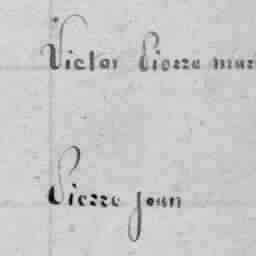 Victor Pierre mar
Pierre Jean